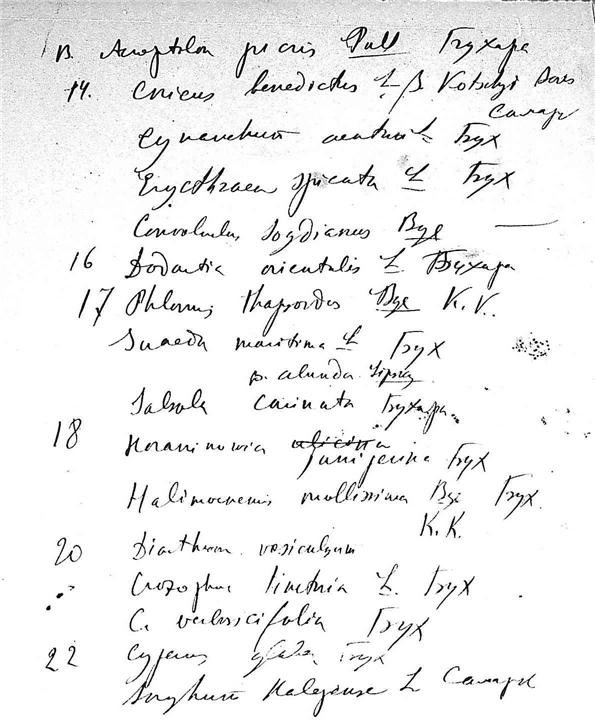 13. Acroptilon picris Pall Бухара
14. Cnicus benedictus L β Kotschyi Boiss
Самарк
Cynanchum acutum L Бух
Erythraea spicata L Бух
Convolvulus sogdianus Bge —
16 Dodartia orientalis L Бухара
17 Phlomis thapsoides Bge K. K.
Suaeda maritima L Бух
Lipsky
Salsola carinata Бухара
18 Horaninowia juniperina Бух
Halimocnemis mollissima Bge Бух
K. K.
20 Dianthum
Crozoph tinctoria L. Бух
C. verbascifolia Бух
22 Cyperus Бух
Sorghum Halepense L Самарк